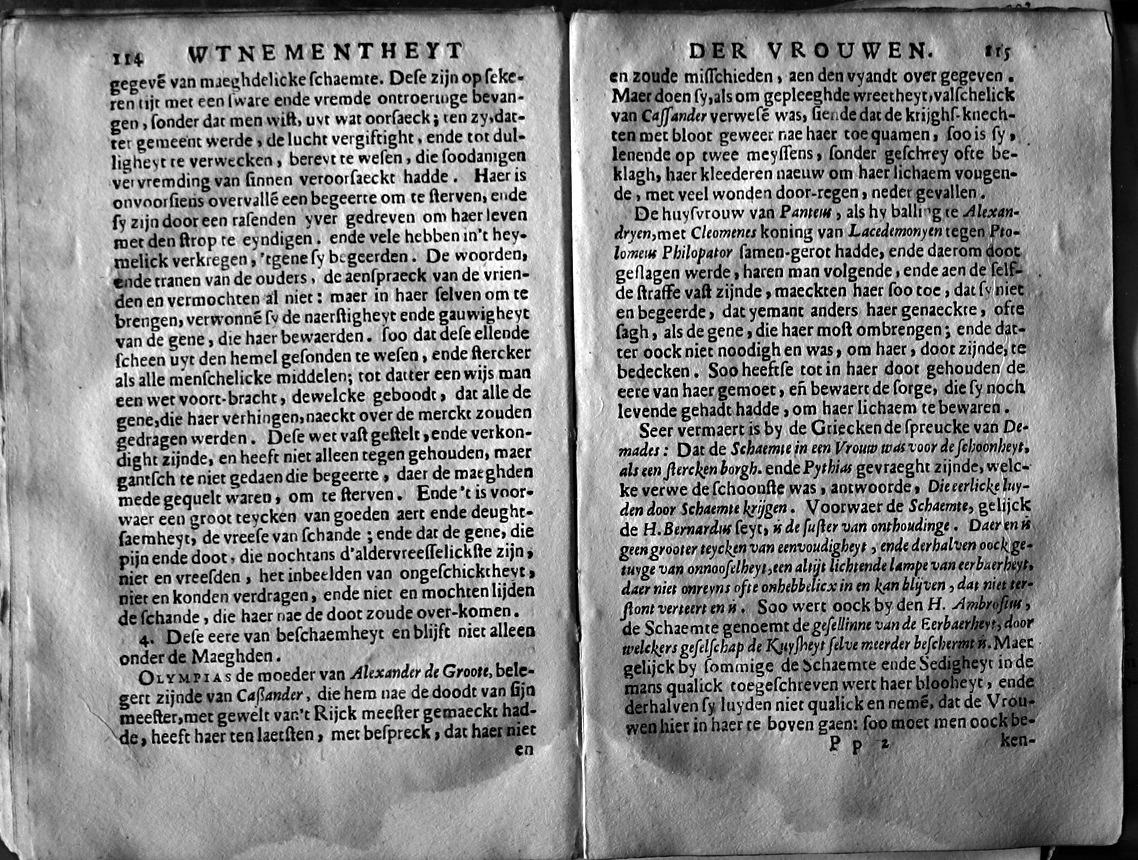 114 WTNEMENTHEYT
gegevē van maeghdelicke ſchaemte. Deſe zijn op ſeke-
ren tijt met een ſware ende vremde ontroeringe bevan-
gen, ſonder dat men wiſt, uyt wat oorſaeck; ten zy, dat-
ter gemeent werde, de lucht vergiftight, ende tot dul-
ligheyt te verwecken, bereyt te weſen, die ſoodanigen
vervremding van ſinnen veroorſaeckt hadde. Haer is
onvoorſiens overvallē een begeerte om te ſterven, ende
ſy zijn door een raſenden yver gedreven om haer leven
met den ſtrop te eyndigen. ende vele hebben in't hey-
melick verkregen, 'tgene ſy begeerden. De woorden,
ende tranen van de ouders, de aenſpraeck van de vrien-
den en vermochten al niet: maer in haer ſelven om te
brengen, verwonnē ſy de naerſtigheyt ende gauwigheyt
van de gene, die haer bewaerden. ſoo dat deſe ellende
ſcheen uyt den hemel geſonden te weſen, ende ſtercker
als alle menſchelicke middelen; tot datter een wijs man
een wet voort-bracht, dewelcke geboodt, dat alle de
gene, die haer verhingen, naeckt over de merckt zouden
gedragen werden. Deſe wet vaſt geſtelt, ende verkon-
dight zijnde, en heeft niet alleen tegen gehouden, maer
gantſch te niet gedaen die begeerte, daer de maeghden
mede gequelt waren, om te ſterven. Ende 't is voor-
waer een groot teycken van goeden aert ende deught-
ſaemheyt, de vreeſe van ſchande; ende dat de gene, die
pijn ende doot, die nochtans d'aldervreeſſelickſte zijn,
niet en vreeſden, het inbeelden van ongeſchicktheyt,
niet en konden verdragen, ende niet en mochten lijden
de ſchande, die haer nae de doot zoude over-komen.
4. Deſe eere van beſchaemheyt en blijft niet alleen
onder de Maeghden.
OLYMPIAS de moeder van Alexander de Groote, bele-
gert zijnde van Caßander, die hem nae de doodt van ſijn
meeſter, met gewelt van't Rijck meeſter gemaeckt had-
de, heeft haer ten laetſten, met beſpreck, dat haer niet
en
DER VROUWEN. 115
en zoude miſſchieden, aen den vyandt over gegeven.
Maer doen ſy, als om gepleeghde wreetheyt, valſchelick
van Caſſander verweſē was, ſiende dat de krijghſ-knech-
ten met bloot geweer nae haer toe quamen, ſoo is ſy,
lenende op twee meyſſens, ſonder geſchrey ofte be-
klagh, haer kleederen naeuw om haer lichaem vougen-
de, met veel wonden door-regen, neder gevallen.
De huyſvrouw van Panteus, als hy balling te Alexan-
dryen, met Cleomenes koning van Lacedemonyen tegen Pto-
lomeus Philopator ſamen-gerot hadde, ende daerom doot
geſlagen werde, haren man volgende, ende aen de ſelf-
de ſtraffe vaſt zijnde, maeckten haer ſoo toe, dat ſy niet
en begeerde, dat yemant anders haer genaeckte, ofte
ſagh, als de gene, die haer moſt ombrengen; ende dat-
ter oock niet noodigh en was, om haer, doot zijnde, te
bedecken. Soo heeftſe tot in haer doot gehouden de
eere van haer gemoet, eñ bewaert de ſorge, die ſy noch
levende gehadt hadde, om haer lichaem te bewaren.
Seer vermaert is by de Griecken de ſpreucke van De-
mades: Dat de Schaemte in een Vrouw was voor de ſchoonheyt,
als een ſtercken borgh. ende Pythias gevraeght zijnde, welc-
ke verwe de ſchoonſte was, antwoorde, Die eerlicke luy-
den door Schaemte krijgen. Voorwaer de Schaemte, gelijck
de H. Bernardus ſeyt, is de ſuſter van onthoudinge. Daer en is
geen grooter teycken van eenvoudigheyt, ende derhalven oock ge-
tuyge van onnooſelheyt, een altijt lichtende lampe van eerbaerheyt,
daer niet onreyns ofte onhebbelicx in en kan blijven, dat niet ter-
ſtont verteert en is. Soo wert oock by den H. Ambroſius,
de Schaemte genoemt de geſellinne van de Eerbaerheyt, door
welckers geſelſchap de Kuyſheyt ſelve meerder beſchermt is. Maer
gelijck by ſommige de Schaemte ende Sedigheyt in de
mans qualick toegeſchreven wert haer blooheyt, ende
derhalven ſy luyden niet qualick en nemē, dat de Vrou-
wen hier in haer te boven gaen: ſoo moet men oock be-
P p 2 ken-